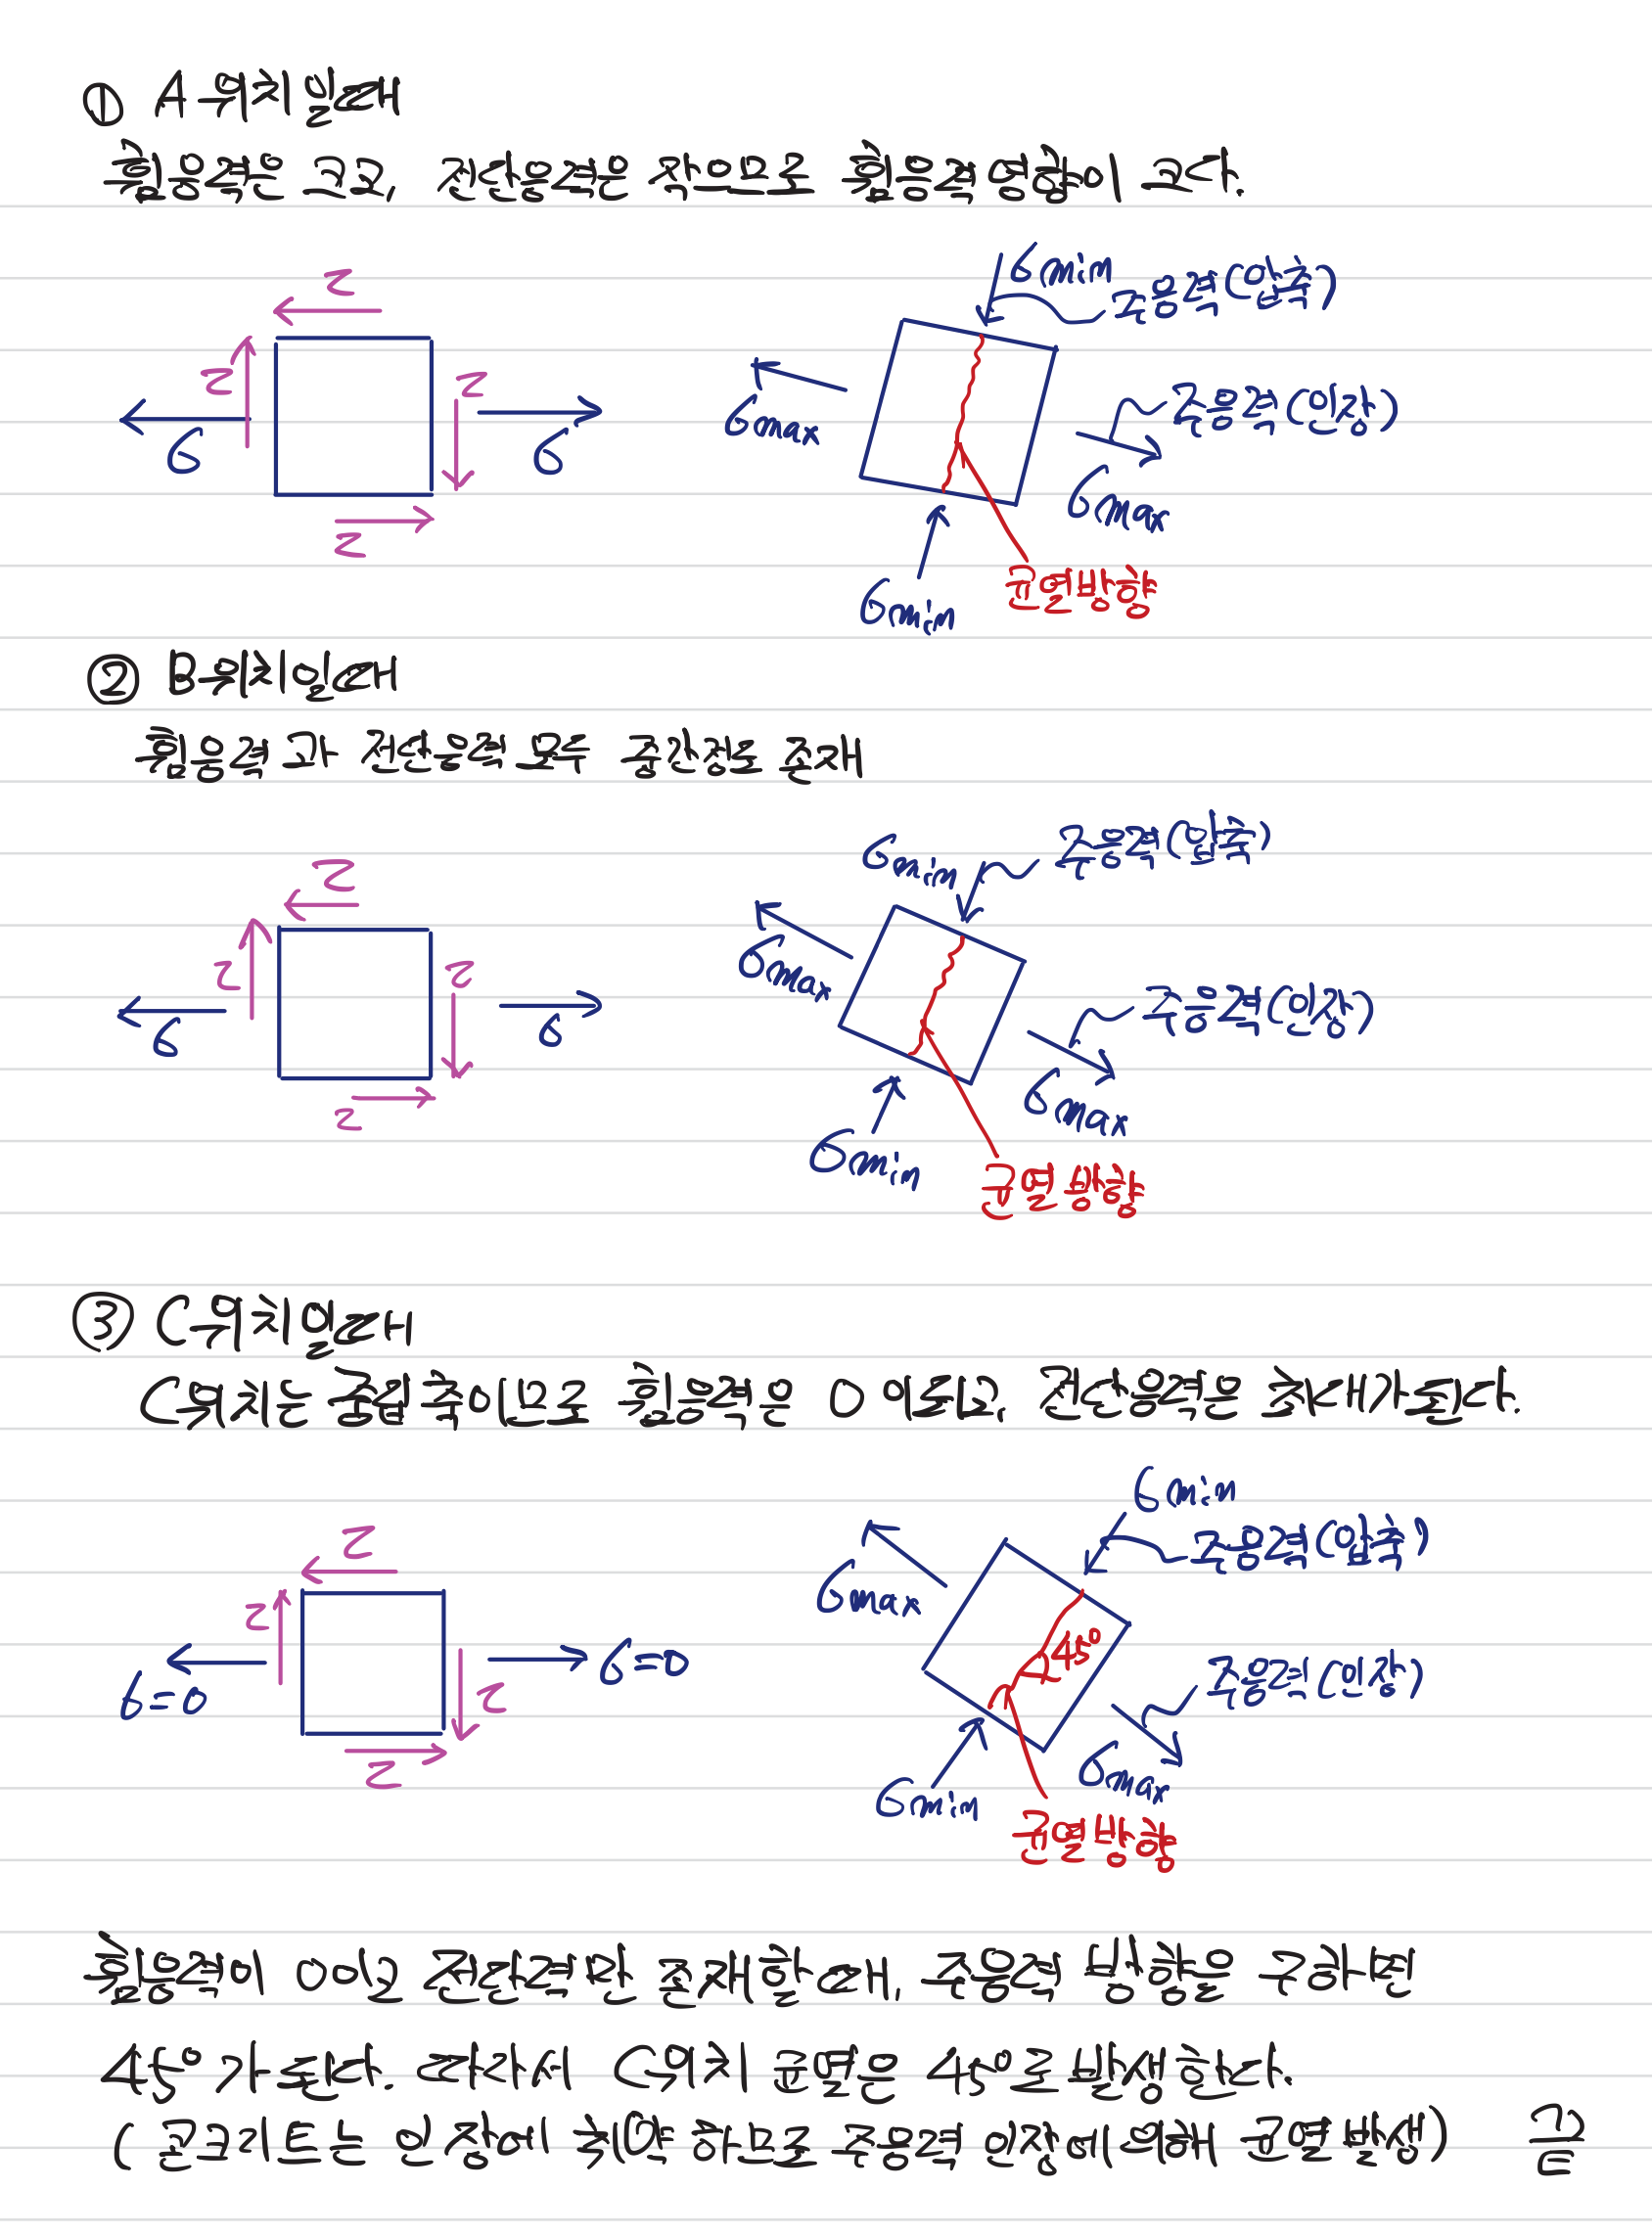 ① A위치일때
휨응력은 크고, 전단응력은 작으므로 휨응력 영향이 크다.
τ
τ
τ
σ
σ
τ
σmin
주응력(압축)
σmax
주응력(인장)
σmax
σmin
균열방향
② B위치일때
휨응력과 전단응력 모두 중간정도 존재
τ
τ
τ
σ
σ
τ
σmin
주응력(압축)
σmax
주응력(인장)
σmax
σmin
균열방향
③ C위치일때
C위치는 중립축이므로 휨응력은 0이되고, 전단응력은 최대가된다.
τ
τ
σ=0
σ=0
τ
τ
σmin
주응력(압축)
σmax
45°
주응력(인장)
σmax
σmin
균열방향
휨응력이 0이고 전단응력만 존재할때, 주응력 방향을 구하면
45°가 된다. 따라서 C위치 균열은 45°로 발생한다.
(콘크리트는 인장에 취약하므로 주응력 인장에의해 균열발생) 끝